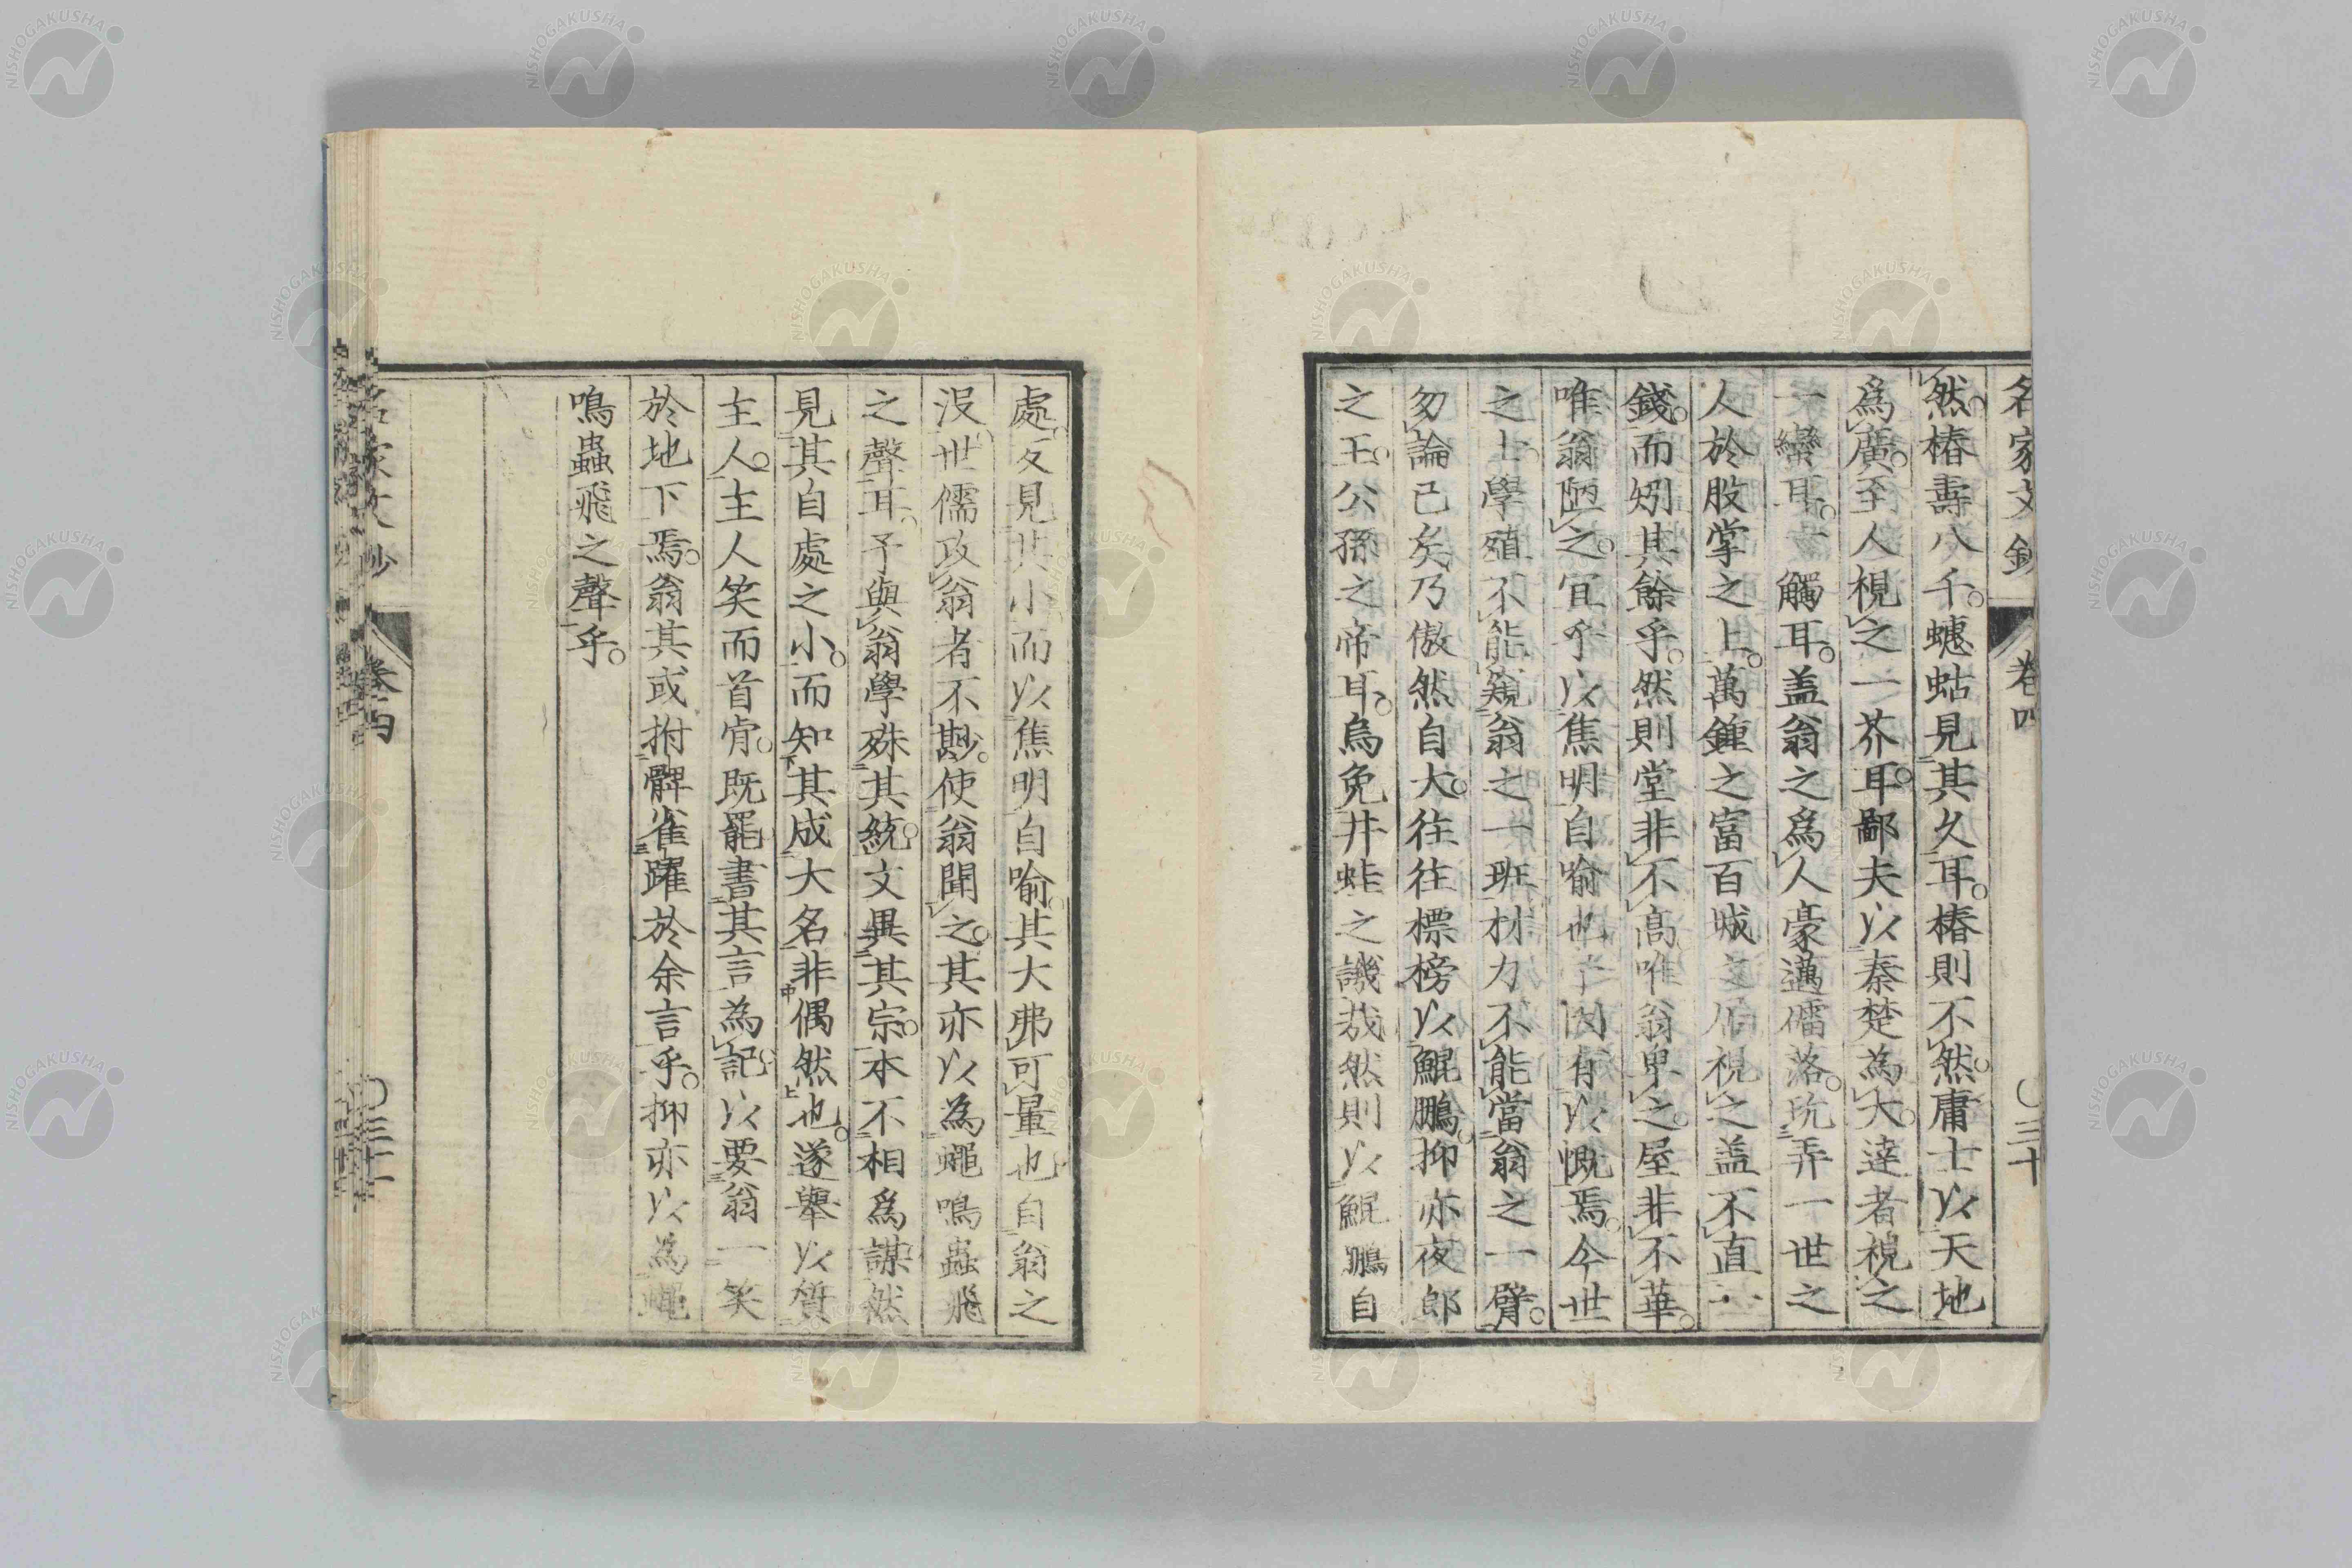 名家文鈔 卷四 〇三十
然。椿壽八千。蟪蛄見其久耳。椿則不然。庸士以天地
爲廣。至人視之一芥耳。鄙夫以秦楚為大。達者視之
一蠻耳。一觸耳。盖翁之爲人豪邁儒落。玩弄一世之
人於股掌之上。萬鍾之富百城之居視之盖不直一
錢。而矧其餘乎。然則堂非不高唯翁卑之。屋非不華。
唯翁陋之。宜乎以焦明自喻也予因有以慨焉。今世
之士。學殖不能窺翁之一班材力不能當翁之一臂。
勿論已矣乃傲然自大。往往標榜以鯤鵬。抑亦夜郎
之王。公孫之帝耳。烏免井蛙之譏哉然則以鯤鵬自
處。反見其小而以焦明自喻。其大弗可量也自翁之
沒世儒攻翁者不尠。使翁聞之。其亦以為蠅鳴蟲飛
之聲耳。予與翁學殊其統。文異其宗。本不相爲謀然
見其自處之小。而知其成大名非偶然也。遂舉以質
主人。主人笑而首肯。既罷書其言為記。以要翁一笑
於地下焉。翁其或拊髀雀躍於余言乎。抑亦以為蠅
鳴蟲飛之聲乎。
名家文鈔 卷四 〇三十一
NISHOGAKUSHA